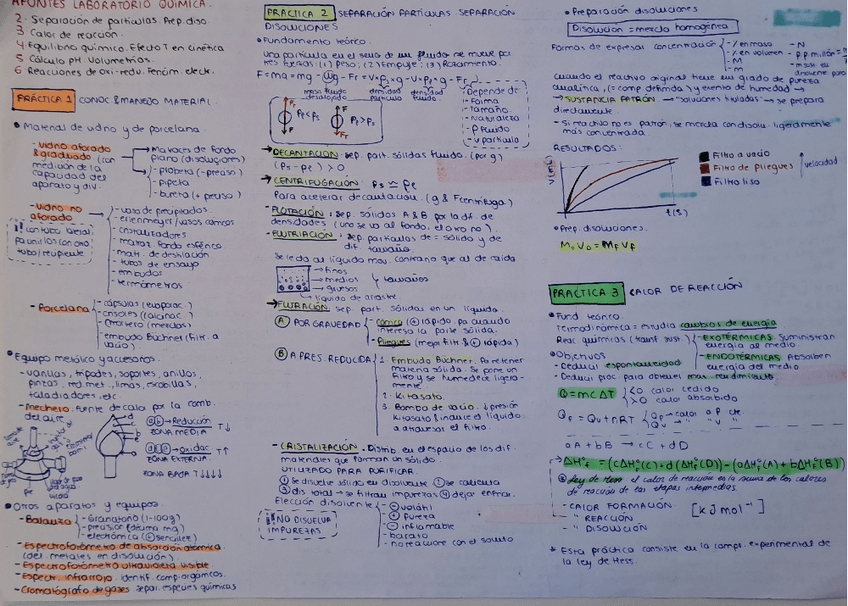 APUNTES LABORATORIO QUÍMICA.
2. Separación de partículas. Prep. diso.
3 Calor de reacción.
4 Equilibrio químico. Efecto T en cinética
5 Cálculo pH. Volumetrías.
6 Reacciones de oxi-redu. Fenóm. electr.
PRÁCTICA 1 CONOC & MANEJO MATERIAL.
• Material de vidrio y de porcelana
- Vidrio aforado & graduado (con medición de la capacidad del aparato y div.
- Matraces de fondo plano (disoluciones)
- probeta (- preciso)
- pipeta
- bureta (+ preciso)
- Vidrio no aforado
- vaso de precipitados
- erlenmeyer / vasos cónicos
- cristalizadores
- matraz fondo esférico
- matr. de destilación
- tubos de ensayo
- embudos
- termómetros
con tubo lateral
- Porcelana
- cápsulas (evaporac.)
- crisoles (calcinac.)
- mortero (mezclas)
- embudo Büchner (filtr. a vacío)
• Equipo metálico y accesorios.
- varillas, trípodes, soportes, anillos,
pinzas, red met., limas, escobillas,
taladradores, etc.
- Mechero: fuente de calor por la comb.
del aire
Reducción T↓
ZONA MEDIA
Oxidac T↑
ZONA EXTERNA
ZONA BAJA T↓↓↓↓
• Otros aparatos y equipos.
- Balanza
- Granatario (1-100g)
- precisión (décima mg)
- electrónica (⊕ sencillez)
- Espectrofotómetro de absorción atómica
(det. metales en disolución)
- Espectrofotómetro ultravioleta visible
- Espectr. infrarrojo identif. comp. orgánicos.
- Cromatógrafo de gases separ. especies químicas
PRÁCTICA 2 SEPARACIÓN PARTÍCULAS. SEPARACIÓN
DISOLUCIONES
• Fundamento teórico.
Una partícula en el seno de un fluido se mueve por
tres fuerzas: (1) Peso; (2) Empuje; (3) Rozamiento.
masa fluido desalojado
densidad partícula
densidad fluido
Depende de:
- Forma
- Tamaño
- Naturaleza
- ρ fluido
- v partícula
→ DECANTACIÓN: sep. part. sólidas fluido. (por g)
(ρs - ρe) > 0.
→ CENTRIFUGACIÓN ρs ≈ ρe
Para acelerar decantación. (g & Fcentrífuga)
- FLOTACIÓN: sep. sólidos A & B por la dif. de
densidades (uno se va al fondo, el otro no).
- ELUTRIACIÓN: sep. partículas de = sólido y de
dif. tamaño.
Se le da al líquido mov. contrario que al de caída
finos
medios
gruesos
tamaños
líquido de arrastre
→ FILTRACIÓN: sep. part. sólidas en un líquido.
Ⓐ POR GRAVEDAD
- Cónico (⊕ rápido pa cuando
interesa la parte sólida.
- Pliegues (mejor filtr & ⊕ rápido)
Ⓑ A PRES. REDUCIDA
1. Embudo Büchner. Pa retener
materia sólida. Se pone un
filtro y se humedece ligera-
mente
2. Kitasato.
3. Bomba de vacío. ↓ presión
Kitasato & induce el líquido
a atravesar el filtro.
- CRISTALIZACIÓN. Distrib. en el espacio de los dif.
materiales que forman un sólido.
UTILIZADO PARA PURIFICAR.
① Se disuelve sólido en disolvente ② se calienta
③ dis. total → se filtran impurezas ④ dejar enfriar.
Elección disolvente
volátil
pureza
inflamable
- barato
- no reaccione con el soluto
NO DISUELVA
IMPUREZAS
• Preparación disoluciones
Disolución = mezcla homogénea
Formas de expresar concentración
- % en masa
- % en volumen
- M
- N
- p.p. millón
Cuando el reactivo original tiene un grado de pureza
analítica, (= comp definida) y exento de humedad →
→ SUSTANCIA PATRÓN → soluciones tituladas → se prepara
directamente
- Si reactivo no es patrón, se mezcla con disolu. ligeramente
más concentrada.
RESULTADOS:
V(mL)
t(s)
Filtro a vacío
Filtro de pliegues
Filtro liso
velocidad
• Prep. disoluciones.
M₀V₀ = MFVF
PRÁCTICA 3 CALOR DE REACCIÓN
• Fund teórico.
Termodinámica = estudia cambios de energía
Reac químicas (transf. sust.)
- EXOTÉRMICAS: Suministran
energía al medio
- ENDOTÉRMICAS Absorben
energía del medio
• Objetivos
- Deducir espontaneidad
- Deducir proc para obtener max. rendimiento
Q = mCΔT
<0 calor cedido
>0 calor absorbido
Qp = Qv + nRT
Qp → calor a P cte.
Qv → " " V "
aA + bB → cC + dD
→ ΔH°r = (cΔH°f(C) + d(ΔH°f(D)) - (aΔH°f(A) + bΔH°f(B))
Ley de Hess el calor de reacción es la suma de los calores
de reacción de las etapas intermedias.
- CALOR FORMACIÓN
- " REACCIÓN
- " DISOLUCIÓN
[kJ mol⁻¹]
* Esta práctica consiste en la compr. experimental de
la ley de Hess.